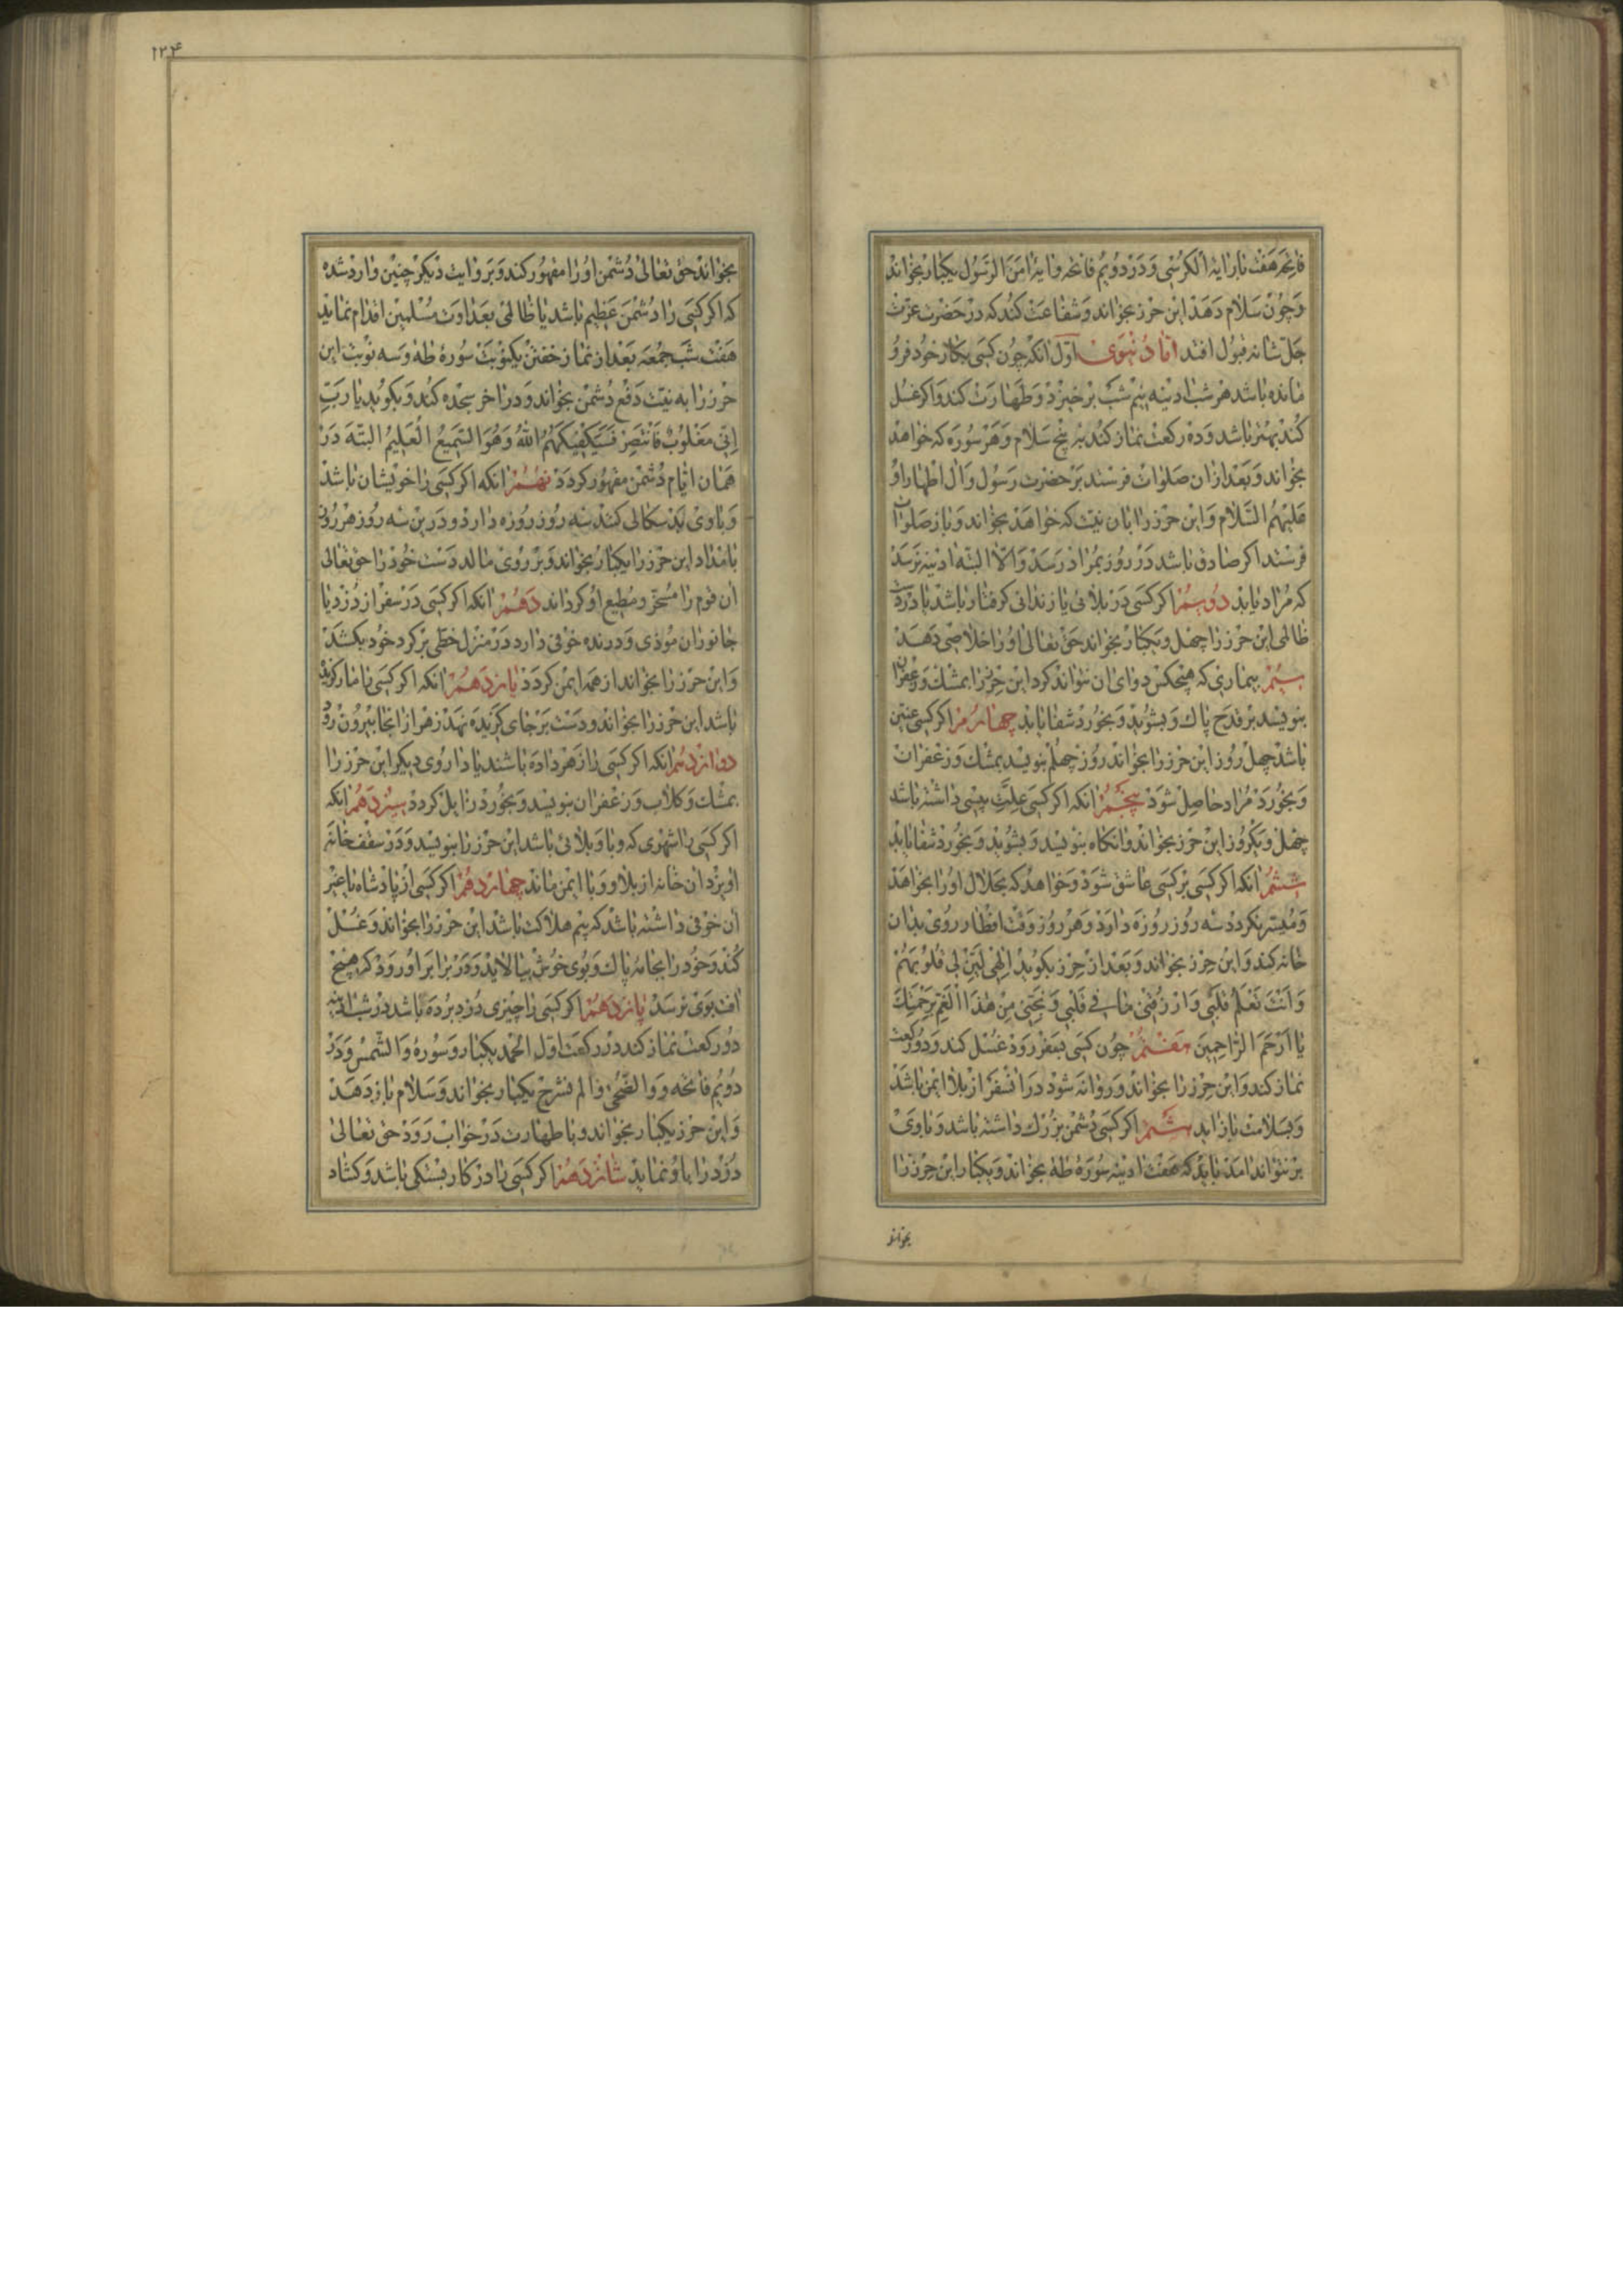 فاتحه هفت بار ایة الکرسی و در دویم فاتحه و ایة امن الرسول یکبار بخواند
و چون سلام دهد این حرز بخواند و شفاعت کند که در حضرت عزت
جل شانه قبول افتد اما دنیوی اول انکه چون کسی بکار خود فرو
مانده باشد هر شب ادینه نیم شب برخیزد و طهارت کند و اکر غسل
کند بهتر باشد و ده رکعت نماز کند به پنج سلام و هر سوره که خواهد
بخواند و بعد از ان صلوات فرستد بر حضرت رسول و ال اطهار او
علیهم السلام و این حرز را بان نیت که خواهد بخواند و باز صلوات
فرستد اکر صادق باشد در روز بمراد رسد و الا البته ادینه نرسد
که مراد یابد دویم اکر کسی در بلائی یا زندانی کرفتار باشد یا در دست
ظالمی این حرز را چهل و یکبار بخواند حق تعالی او را خلاصی دهد
سیم بیماریی که هیچکس دوای ان نتواند کرد این حرز را بمشک و زعفران
بنویسد بر قدح پاک و بشوید و بخورد شفا یابد چهارم اکر کسی عنین
باشد چهل روز این حرز را بخواند روز چهلم بنویسد بمشک و زعفران
و بخورد مراد حاصل شود پنجم انکه اکر کسی علت پیسی داشته باشد
چهل و یکروز این حرز بخواند و انکاه بنویسد و بشوید و بخورد شفا یابد
ششم انکه اکر کسی بر کسی عاشق شود و خواهد که بحلال او را بخواهد
و میسر نکردد سه روز روزه دارد و هر روز وقت افطار روی بدان
خانه کند و این حرز بخواند و بعد از حرز بکوید الهی لین لی قلوبهم
و انت تعلم قلبی و ارزقنی ... فی قلبی و نجنی من هذا الغم برحمتک
یا ارحم الراحمین هفتم چون کسی بسفر رود غسل کند و دو رکعت
نماز کند و این حرز را بخواند و روانه شود در ان سفر از بلا ایمن باشد
و بسلامت باز اید هشتم اکر کسی دشمن بزرک داشته باشد و با وی
بر نتواند امد باید که هفت ادینه سوره طه بخواند و یکبار این حرز را
بخواند
۱۲۴
بخواند حق تعالی دشمن او را مقهور کند و بروایت دیکر چنین وارد شده
که اکر کسی را دشمن عظیم باشد یا ظالمی بعداوت مسلمین اقدام نماید
هفت شب جمعه بعد از نماز خفتن یکنوبت سوره طه و سه نوبت این
حرز را به نیت دفع دشمن بخواند و در اخر سجده کند و بکوید یا رب
انی مغلوب فانتصر فسیکفیکهم الله و هو السمیع العلیم البته در
همان ایام دشمن مقهور کردد نهم انکه اکر کسی را خویشان باشد
و با وی بد سکالی کنند سه روز روزه دارد و در این سه روز هر روز
بامداد این حرز را یکبار بخواند و بر روی مالد دست خود را حق تعالی
ان قوم را مسخر و مطیع او کرداند دهم انکه اکر کسی در سفر از دزد یا
جانوران موذی و درنده خوفی دارد در منزل خطی بر کرد خود بکشد
و این حرز را بخواند از همه ایمن کردد یازدهم انکه اکر کسی را مار کزیده
باشد این حرز را بخواند و دست بر جای کزیده نهد زهر از انجا بیرون رود
دوازدهم انکه اکر کسی را زهر داده باشند یا داروی دیکر این حرز را
بمشک و کلاب و زعفران بنویسد و بخورد زایل کردد سیزدهم انکه
اکر کسی را شهری که وبا و بلائی باشد این حرز را بنویسد و در سقف خانه
اویزد ان خانه از بلا و وبا ایمن ماند چهاردهم اکر کسی از پادشاه یا غیر
ان خوفی داشته باشد که بیم هلاکت باشد این حرز را بخواند و غسل
کند و خود را بجامهٔ پاک و بوی خوش بیالاید و در برابر او رود که هیچ
افت بوی نرسد پانزدهم اکر کسی را چیزی دزد برده باشد در شب ادینه
دو رکعت نماز کند در رکعت اول الحمد یکبار و سوره والشمس و در
دویم فاتحه و والضحی و الم نشرح یکبار بخواند و سلام باز دهد
و این حرز یکبار بخواند و با طهارت در خواب رود حق تعالی
دزد را باو نماید شانزدهم اکر کسی را در کار بستکی باشد و کشاد